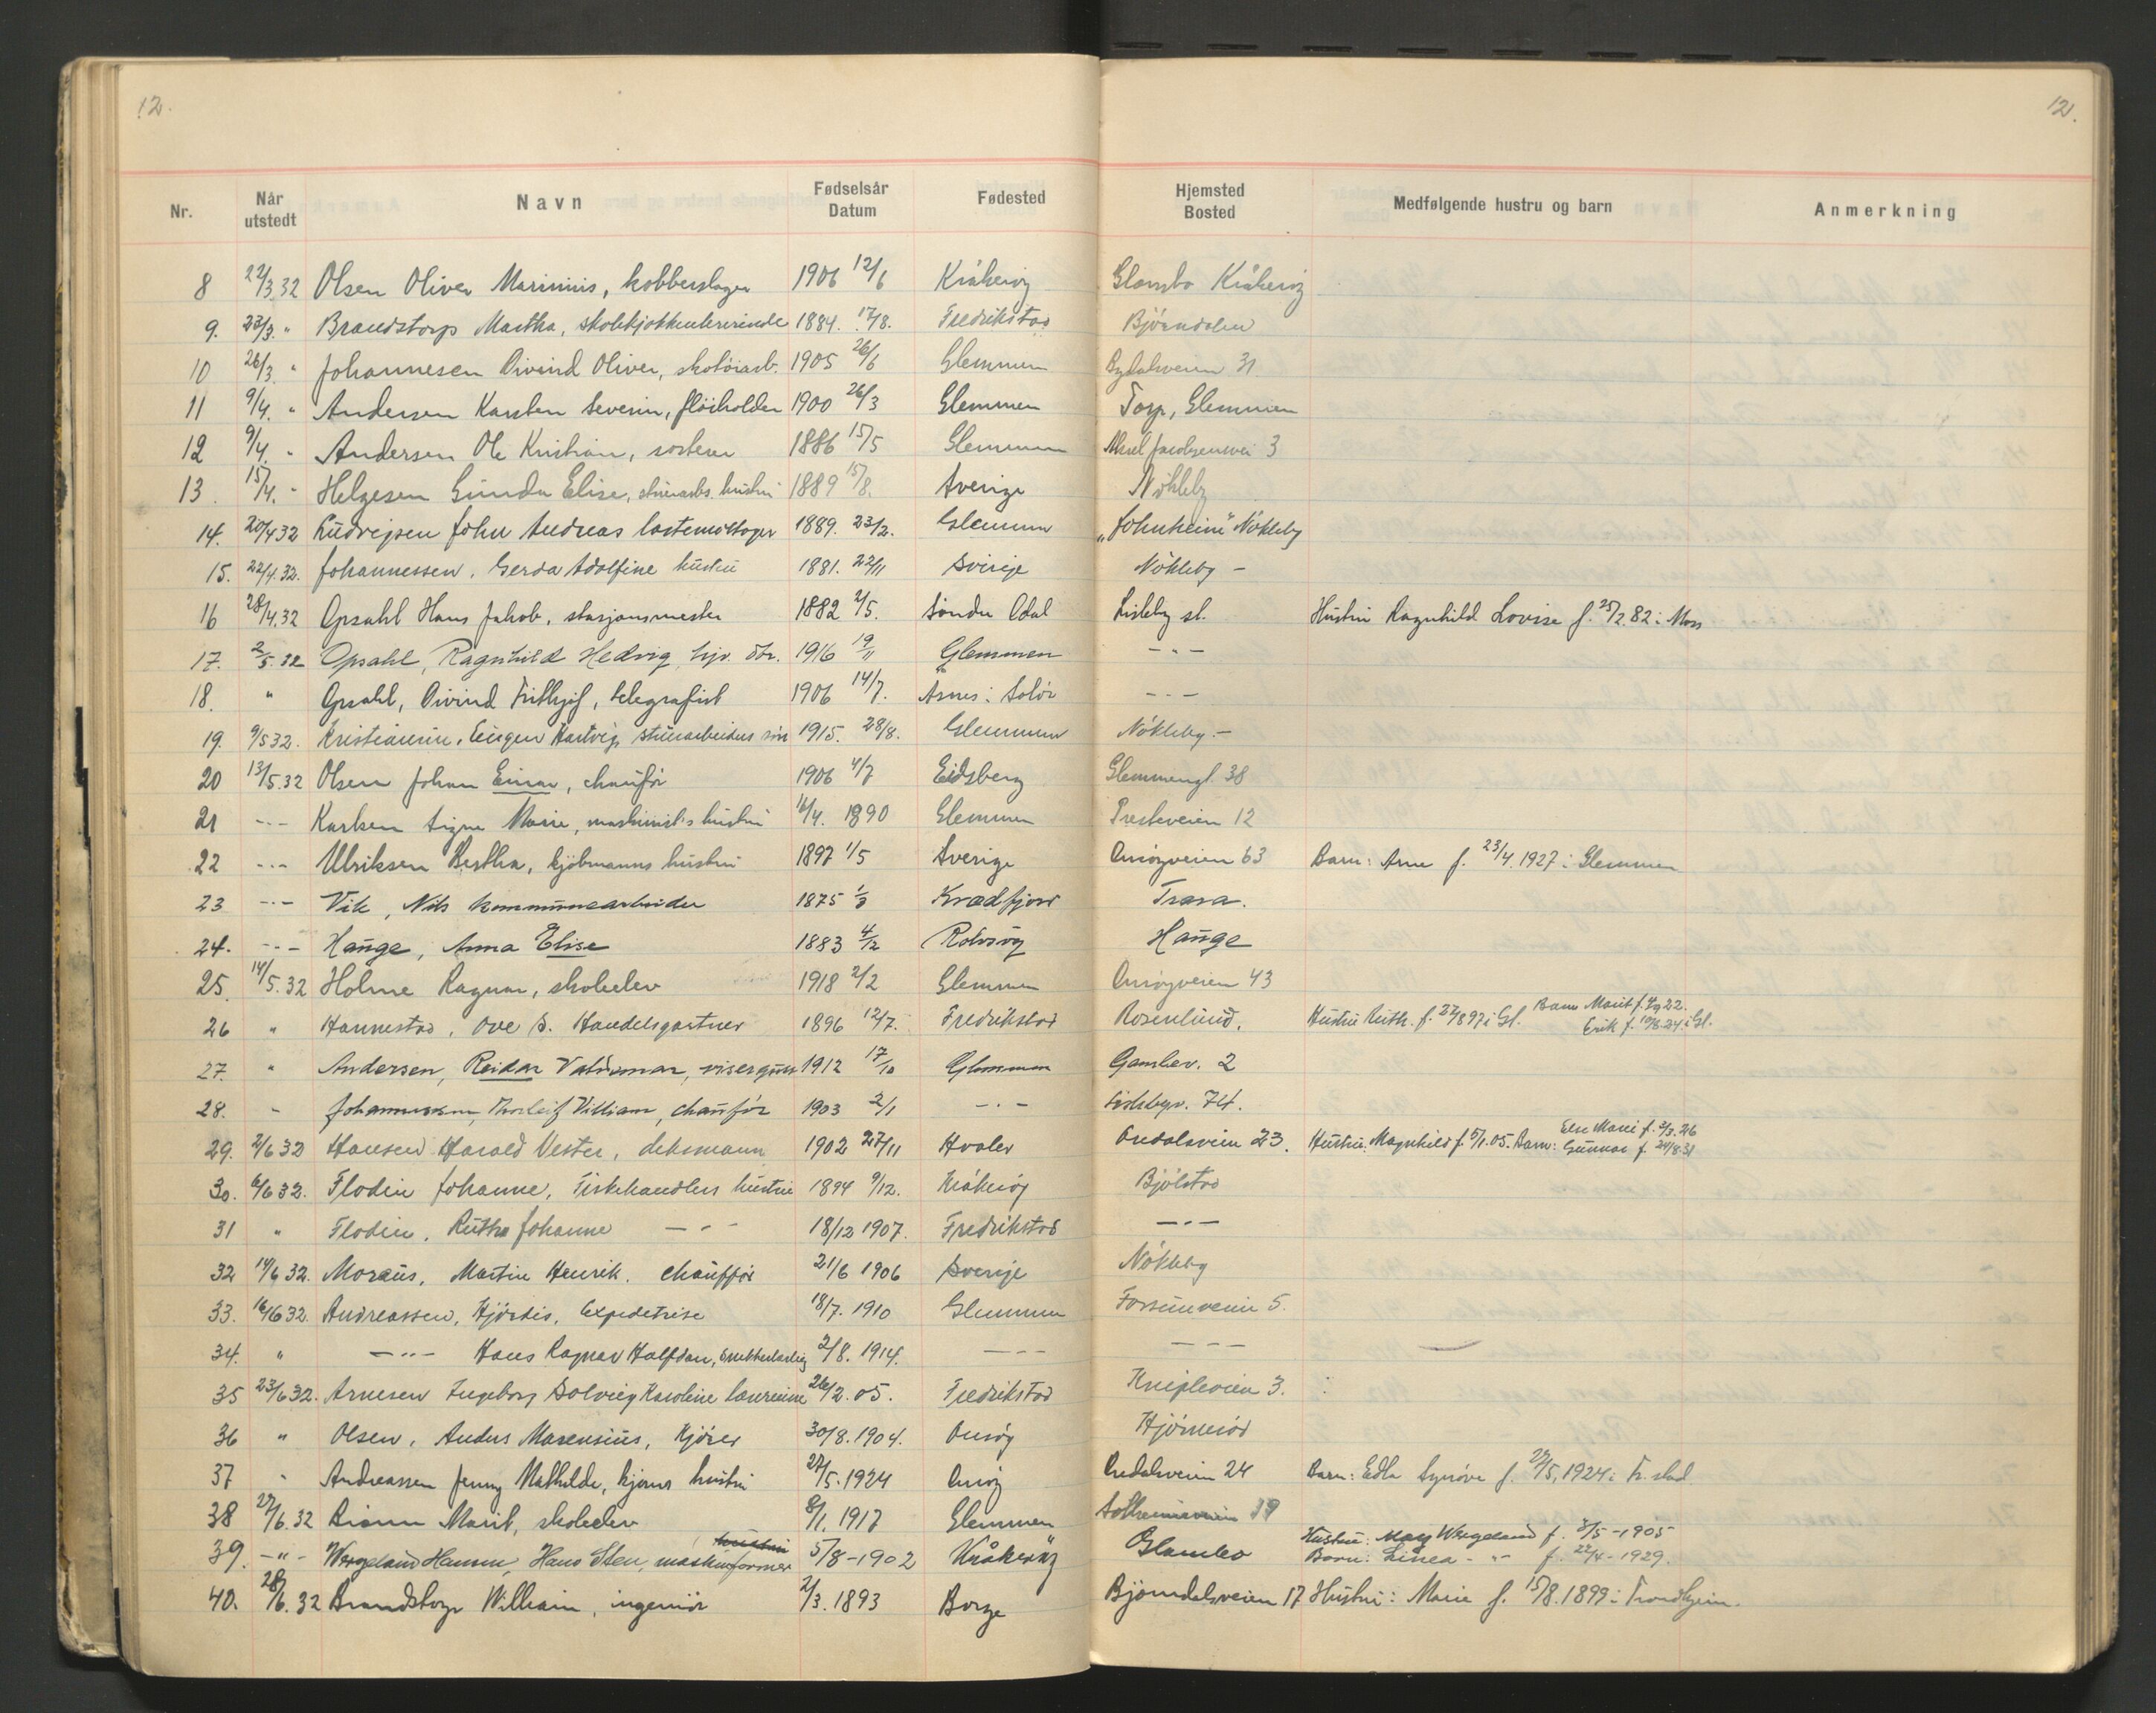 12. 12.
Nr. Når utstedt Navn Fødselsår Datum Fødested Hjemsted Bosted Medfølgende hustru og barn Anmerkning
8 22/3 32 Olsen Oliver Marinius, kobberslager 1906 12/6 Kråkerøy Glombo Kråkerøy
9. 23/3. " Brandstorp Martha, skolekjøkkenlærerinde 1884. 17/8. Fredrikstad Bjørndalen
10 26/3 " Johannesen Oivind Oliver, skotøiarb. 1905 26/6 Glemmen 31
11 9/4. " Andersen Karsten Severin, fløiholder 1900 26/3 Glemmen Torp, Glemmen
12 9/4. " Andersen Ole Kristian, sorterer 1886 15/5 Glemmen Aksel Jacobsensvei 3
13. 15/4. " Helgesen Gunda Elise, hustru 1889 15/8. Sverige Nøkleby
14. 20/4 32 Ludvigsen John Andreas lastemottager 1889. 23/2. Glemmen "Johnheim" Nøkleby
15. 22/4. 32. Johannessen, Gerda Adolfine hustru 1881. 22/11 Sverige Nøkleby -
16 28/4. 32 Opsahl Hans Jakob, stasjonsmester 1882 2/5. Søndre Odal Lisleby st. Hustru Ragnhild Lovise f. 25/2 82 i Moss
17. 2/5. 32 Opsahl, Ragnhild Hedvig hjv. dtr. 1916 19/11 Glemmen - " -
18. " Opsahl, Oivind Frithjof, telegrafist 1906 14/7. Åsnes i Solør - " -
19. 9/5 32. Kristiansen, Eugen Hartvig, stuerarbeiders søn 1915. 28/8. Glemmen Nøkleby. -
20 13/5. 32 Olsen Johan Einar, chauför 1906 4/7 Eidsberg Glemmengt. 38
21 - " - Karlsen Signe Marie, maskinists hustru 16/4. 1890 Glemmen Presteveien 12
22 - " - Ulriksen Bertha, kjøbmanns hustru 1897 1/5 Sverige Onsøyveien 63 Barn: Arne f. 23/4. 1927 i Glemmen
23 - " - Vik, Nils kommunearbeider 1875 Kvædfjord Trara.
24. - " - Hauge, Anna Elise 1883 4/12 Rolvsøy Hauge
25. 14/5. 32 Holme Ragnar, skoleelev 1918 2/2 Glemmen Onsøyveien 43
26 " Hannestad, Ove S. Handelsgartner 1896 12/7. Fredrikstad Rosenlund. Hustru Ruth. f. 22/8 97 i Gl. Barn Marit f. 22.
Erik f. 10/8. 24. i Gl.
27. " Andersen, Reidar Valdemar, visergutt 1912 17/10 Glemmen Gamlev. 2
28. " Johannessen, Thorleif Villiam, chauför 1903 2/1 - " - Lislebyv. 74.
29. 2/6 32 Hansen Harald Vester, deksmann 1902 27/11 Hvaler Oredalsveien 23. Hustru: Magnhild f. 5/1. 05. Barn: Else Marie f. 3/3. 26
Gunnar f. 24/8. 31
30. 6/6 32. Flodin Johanne, Fiskehandlers hustru 1894 9/12. Kråkerøy Bjølstad
31 " Flodin, Ruth Johanne - " - 18/12 1907. Fredrikstad - " -
32 14/6 32. Moræus, Martin Henrik. chaufför 21/6 1906 Sverige Nøkleby
33. 16/6 32. Andreassen, Hjørdis, Expeditrise 18/7. 1910 Glemmen Forsunveien 5.
34. " - " - Hans Ragnar Halfdan, 2/8. 1914. - " - - " -
35 23/6 32. Arnesen Ingeborg Solveig Karoline Laurenine 26/2. 05. Fredrikstad Knipleveien 3.
36 " Olsen, Anders Marensius, Kjører 30/8. 1904. Onsøy
37 " Andreassen Jenny Mathilde, kjørers hustru 27/5. 1924 Onsøy Oredalsveien 24 Barn: Edla Synøve f. 27/5, 1924 i Fr. stad
38 27/6. 32 Marit, skoleelev 8/1. 1917 Glemmen Solheimsveien 19
39. - " - Wergeland Hansen, Hans Sten, maskinformer 5/8 - 1902 Kråkerøy Glombo Hustru: Mary Wergeland f. 3/5 - 1905
Barn: Linea - " - f. 22/4 - 1929.
40. 28/6. 32 Brandstorp William, ingeniör 2/3. 1893 Borge Bjørndalsveien 17 Hustru: Marie f. 15/8. 1899 i Trondhjem.